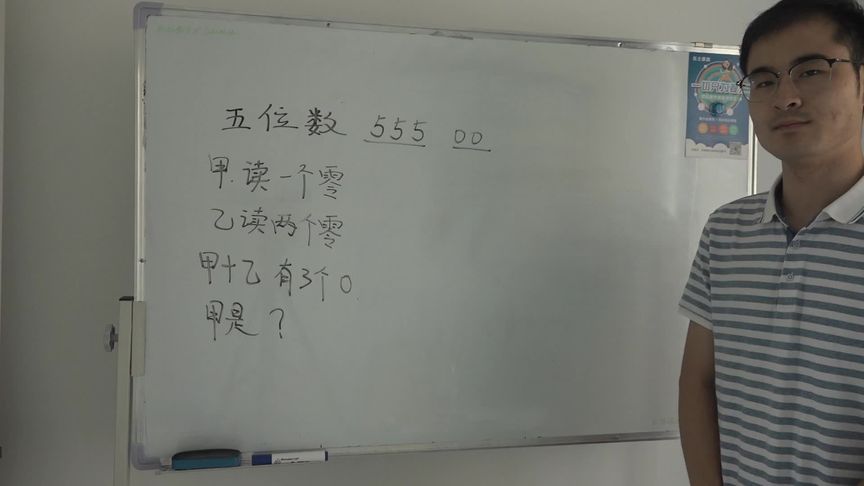 五位数 555 00
甲.读一个零
乙读两个零
甲+乙有3个0.
甲是?